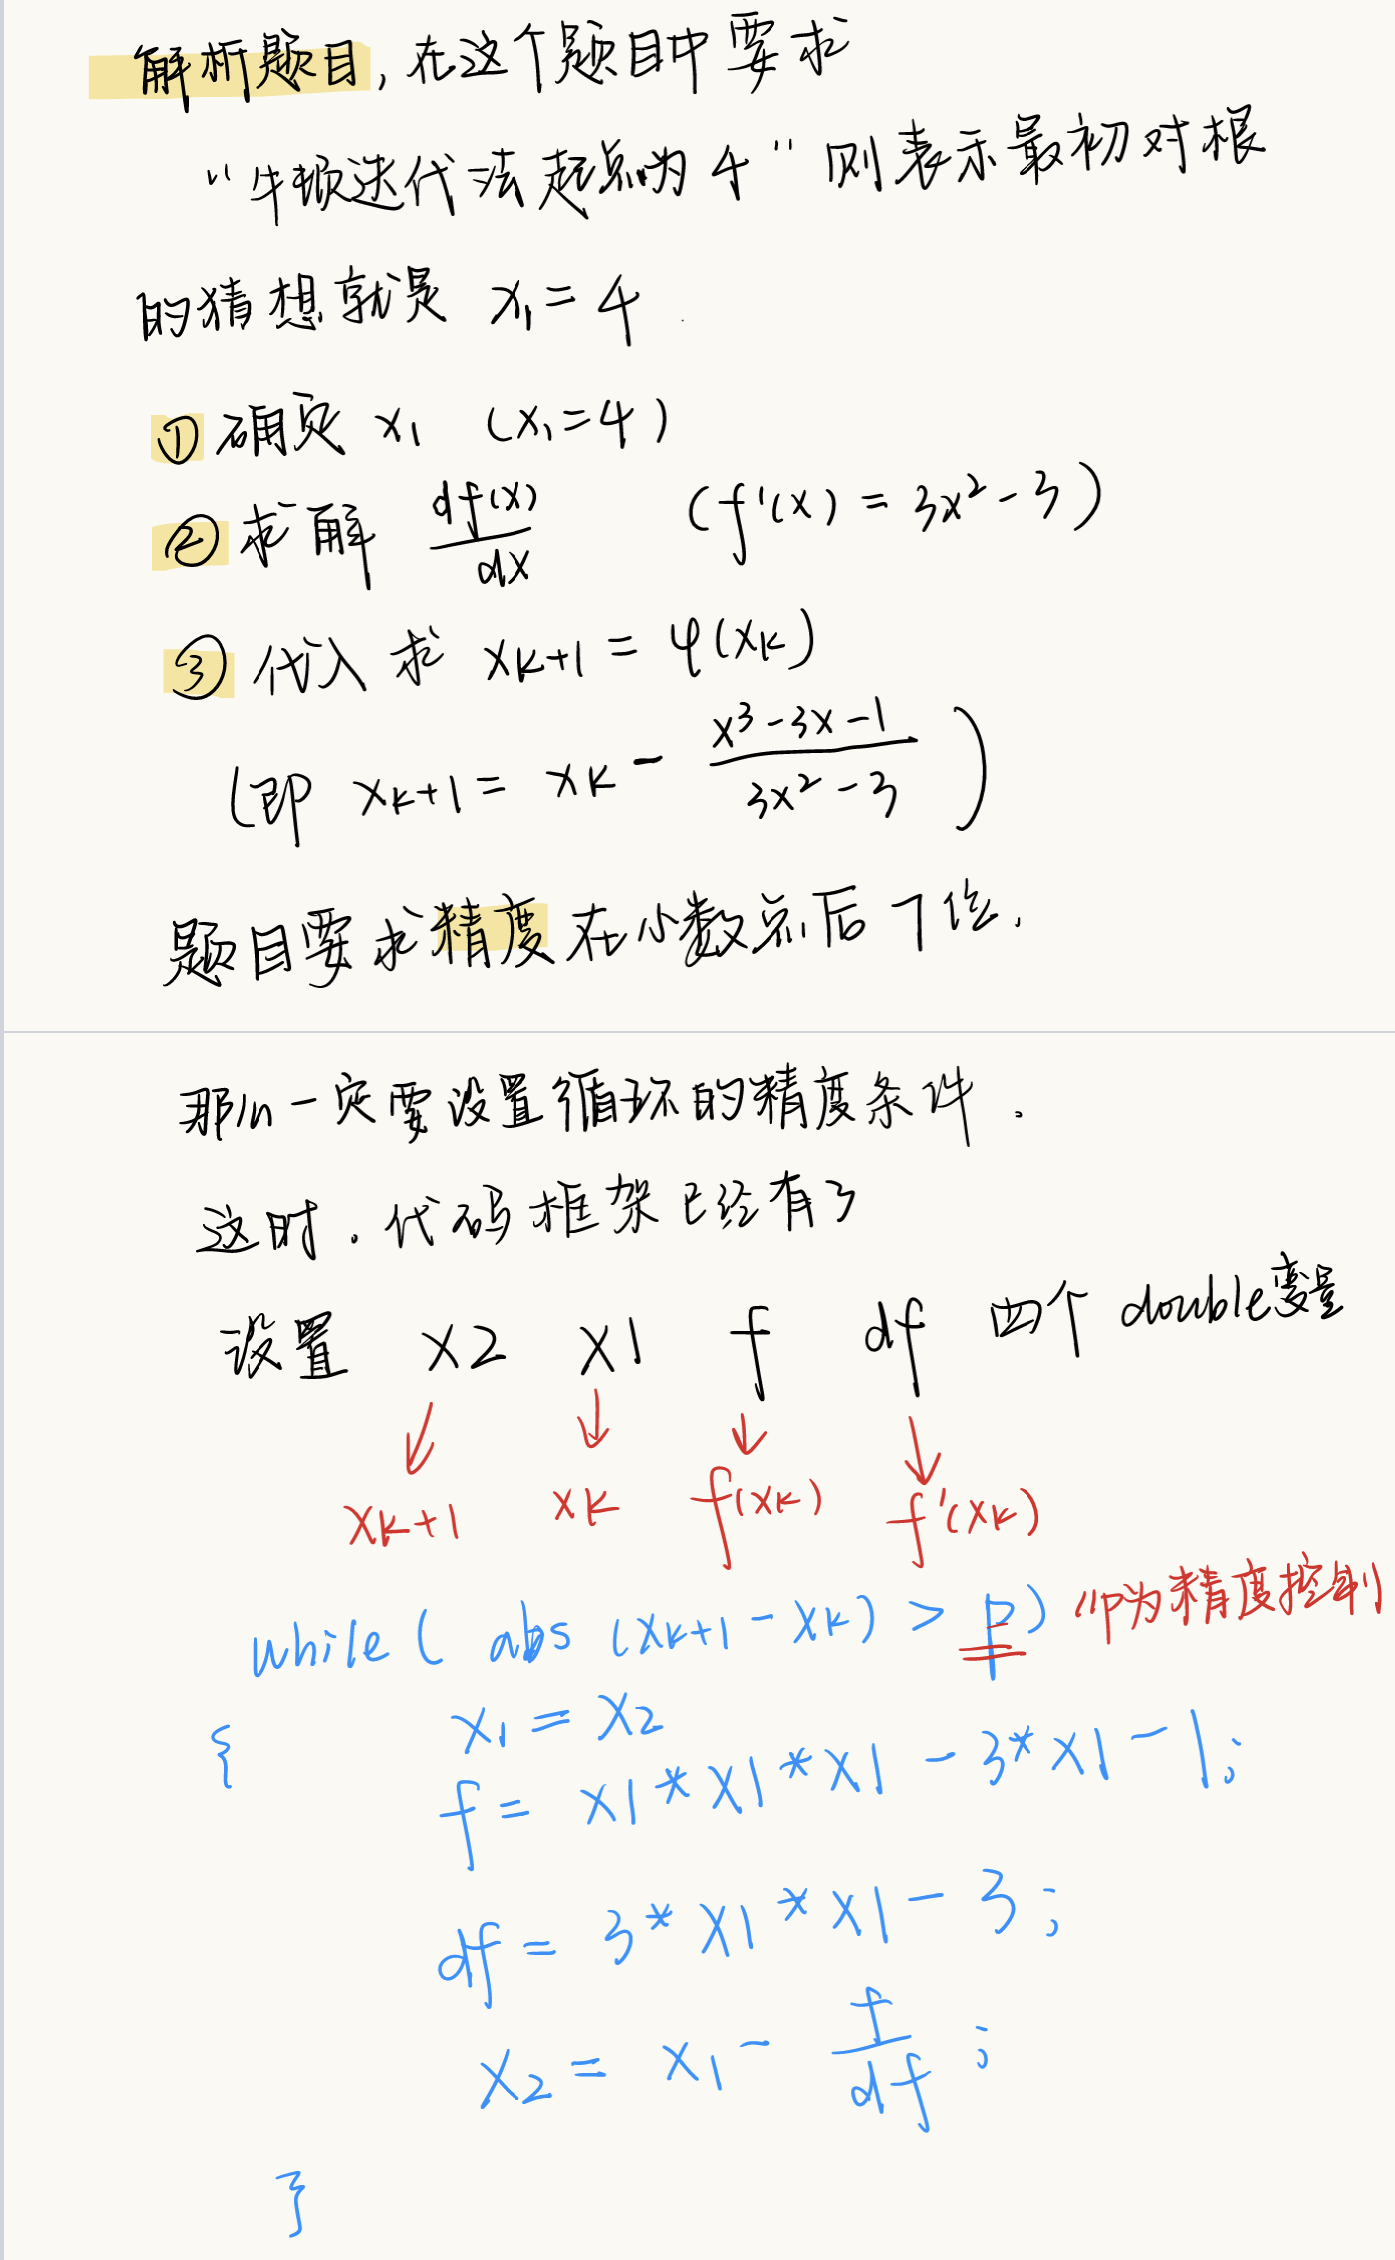 解析题目,在这个题目中要求
“牛顿迭代法起点为4”则表示最初对根
的猜想就是 x₁=4.
① 确定 x₁ (x₁=4)
② 求解 df(x)/dx (f'(x) = 3x²-3)
③ 代入求 xk+1 = φ(xk)
(即 xk+1 = xk - (x³-3x-1)/(3x²-3))
题目要求精度在小数点后7位,
那么一定要设置循环的精度条件.
这时.代码框架已经有了
设置 x2 x1 f df 四个double变量
xk+1 xk f(xk) f'(xk)
while( abs (xk+1 - xk) > p) //p为精度控制
{ x₁ = x₂
f = x1*x1*x1 - 3*x1 - 1;
df = 3*x1*x1 - 3;
x₂ = x₁ - f/df;
}